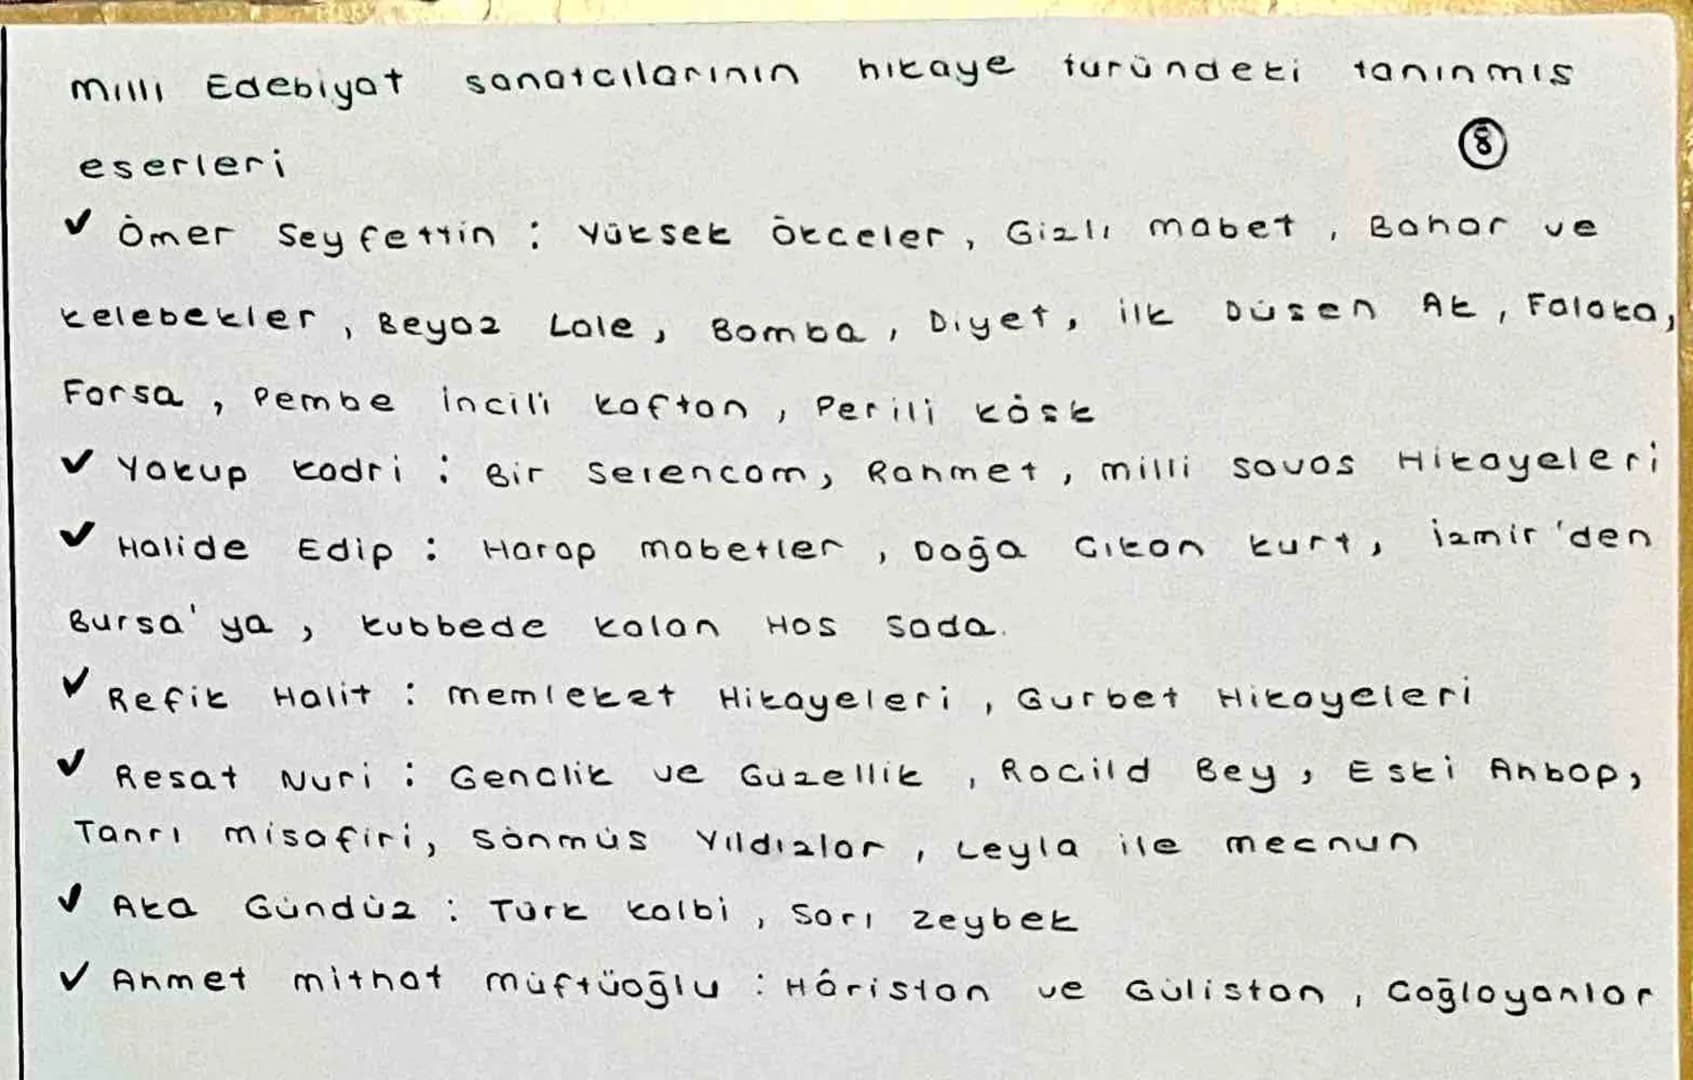 Milli Edebiyat sanatcılarının hikaye turündeki tanınmıs
eserleri
8
✓ Ömer Seyfettin : Yüksek Ökceler, Gizli mabet, Bahar ve
kelebekler, Beyaz Lale, Bomba, Diyet, ilk Düsen Ak, Falaka,
Forsa, Pembe incili kaftan, Perili kösk
✓ Yakup kadri : Bir Serencam, Rahmet, milli savas Hikayeleri
✓ Halide Edip : Harap mabetler, Doğa Cıkan kurt, izmir'den
Bursa'ya, kubbede kalan Hos Sada.
✓ Refik Halit : memleket Hikayeleri, Gurbet Hikayeleri
✓ Resat Nuri : Genclik ve Guzellik, Rocild Bey, Eski Ahbap,
Tanrı misafiri, Sönmüs Yıldızlar, Leyla ile mecnun
✓ Aka Gündüz : Türk kalbi, Sarı Zeybek
✓ Ahmet mithat müftüoğlu : Hâristan ve Gülistan, Cağlayanlar